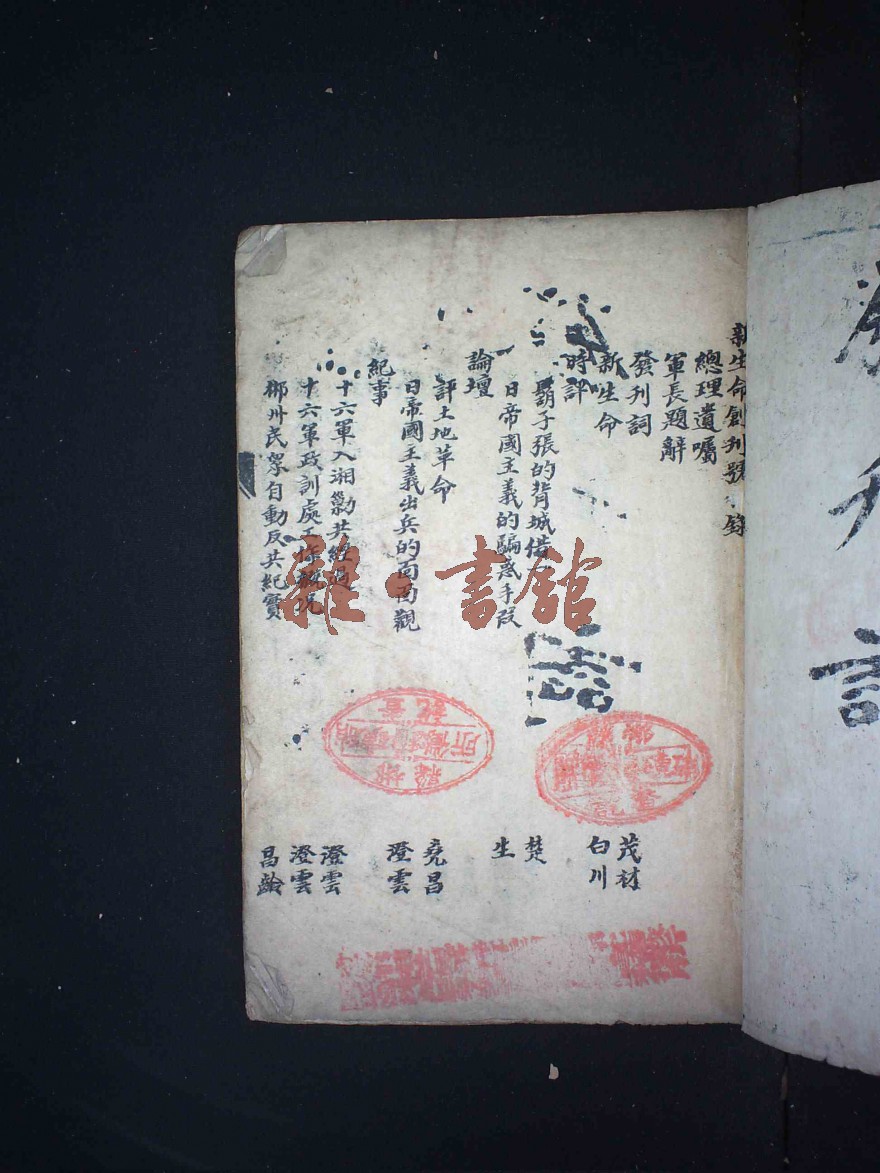 新生命創刊號目錄
總理遺囑
軍長題辭
發刊詞 茂材
新生命 白川
時評
鬍子張的背城借一 楚
日帝國主義的騙惑手段 生
論壇
評土地革命 堯昌
日帝國主義出兵的面面觀 澄雲
紀事
十六軍入湘勦共經過 澄雲
十六軍政訓處工作概況 澄雲
郴州民眾自動反共紀實 昌齡
雜·書館